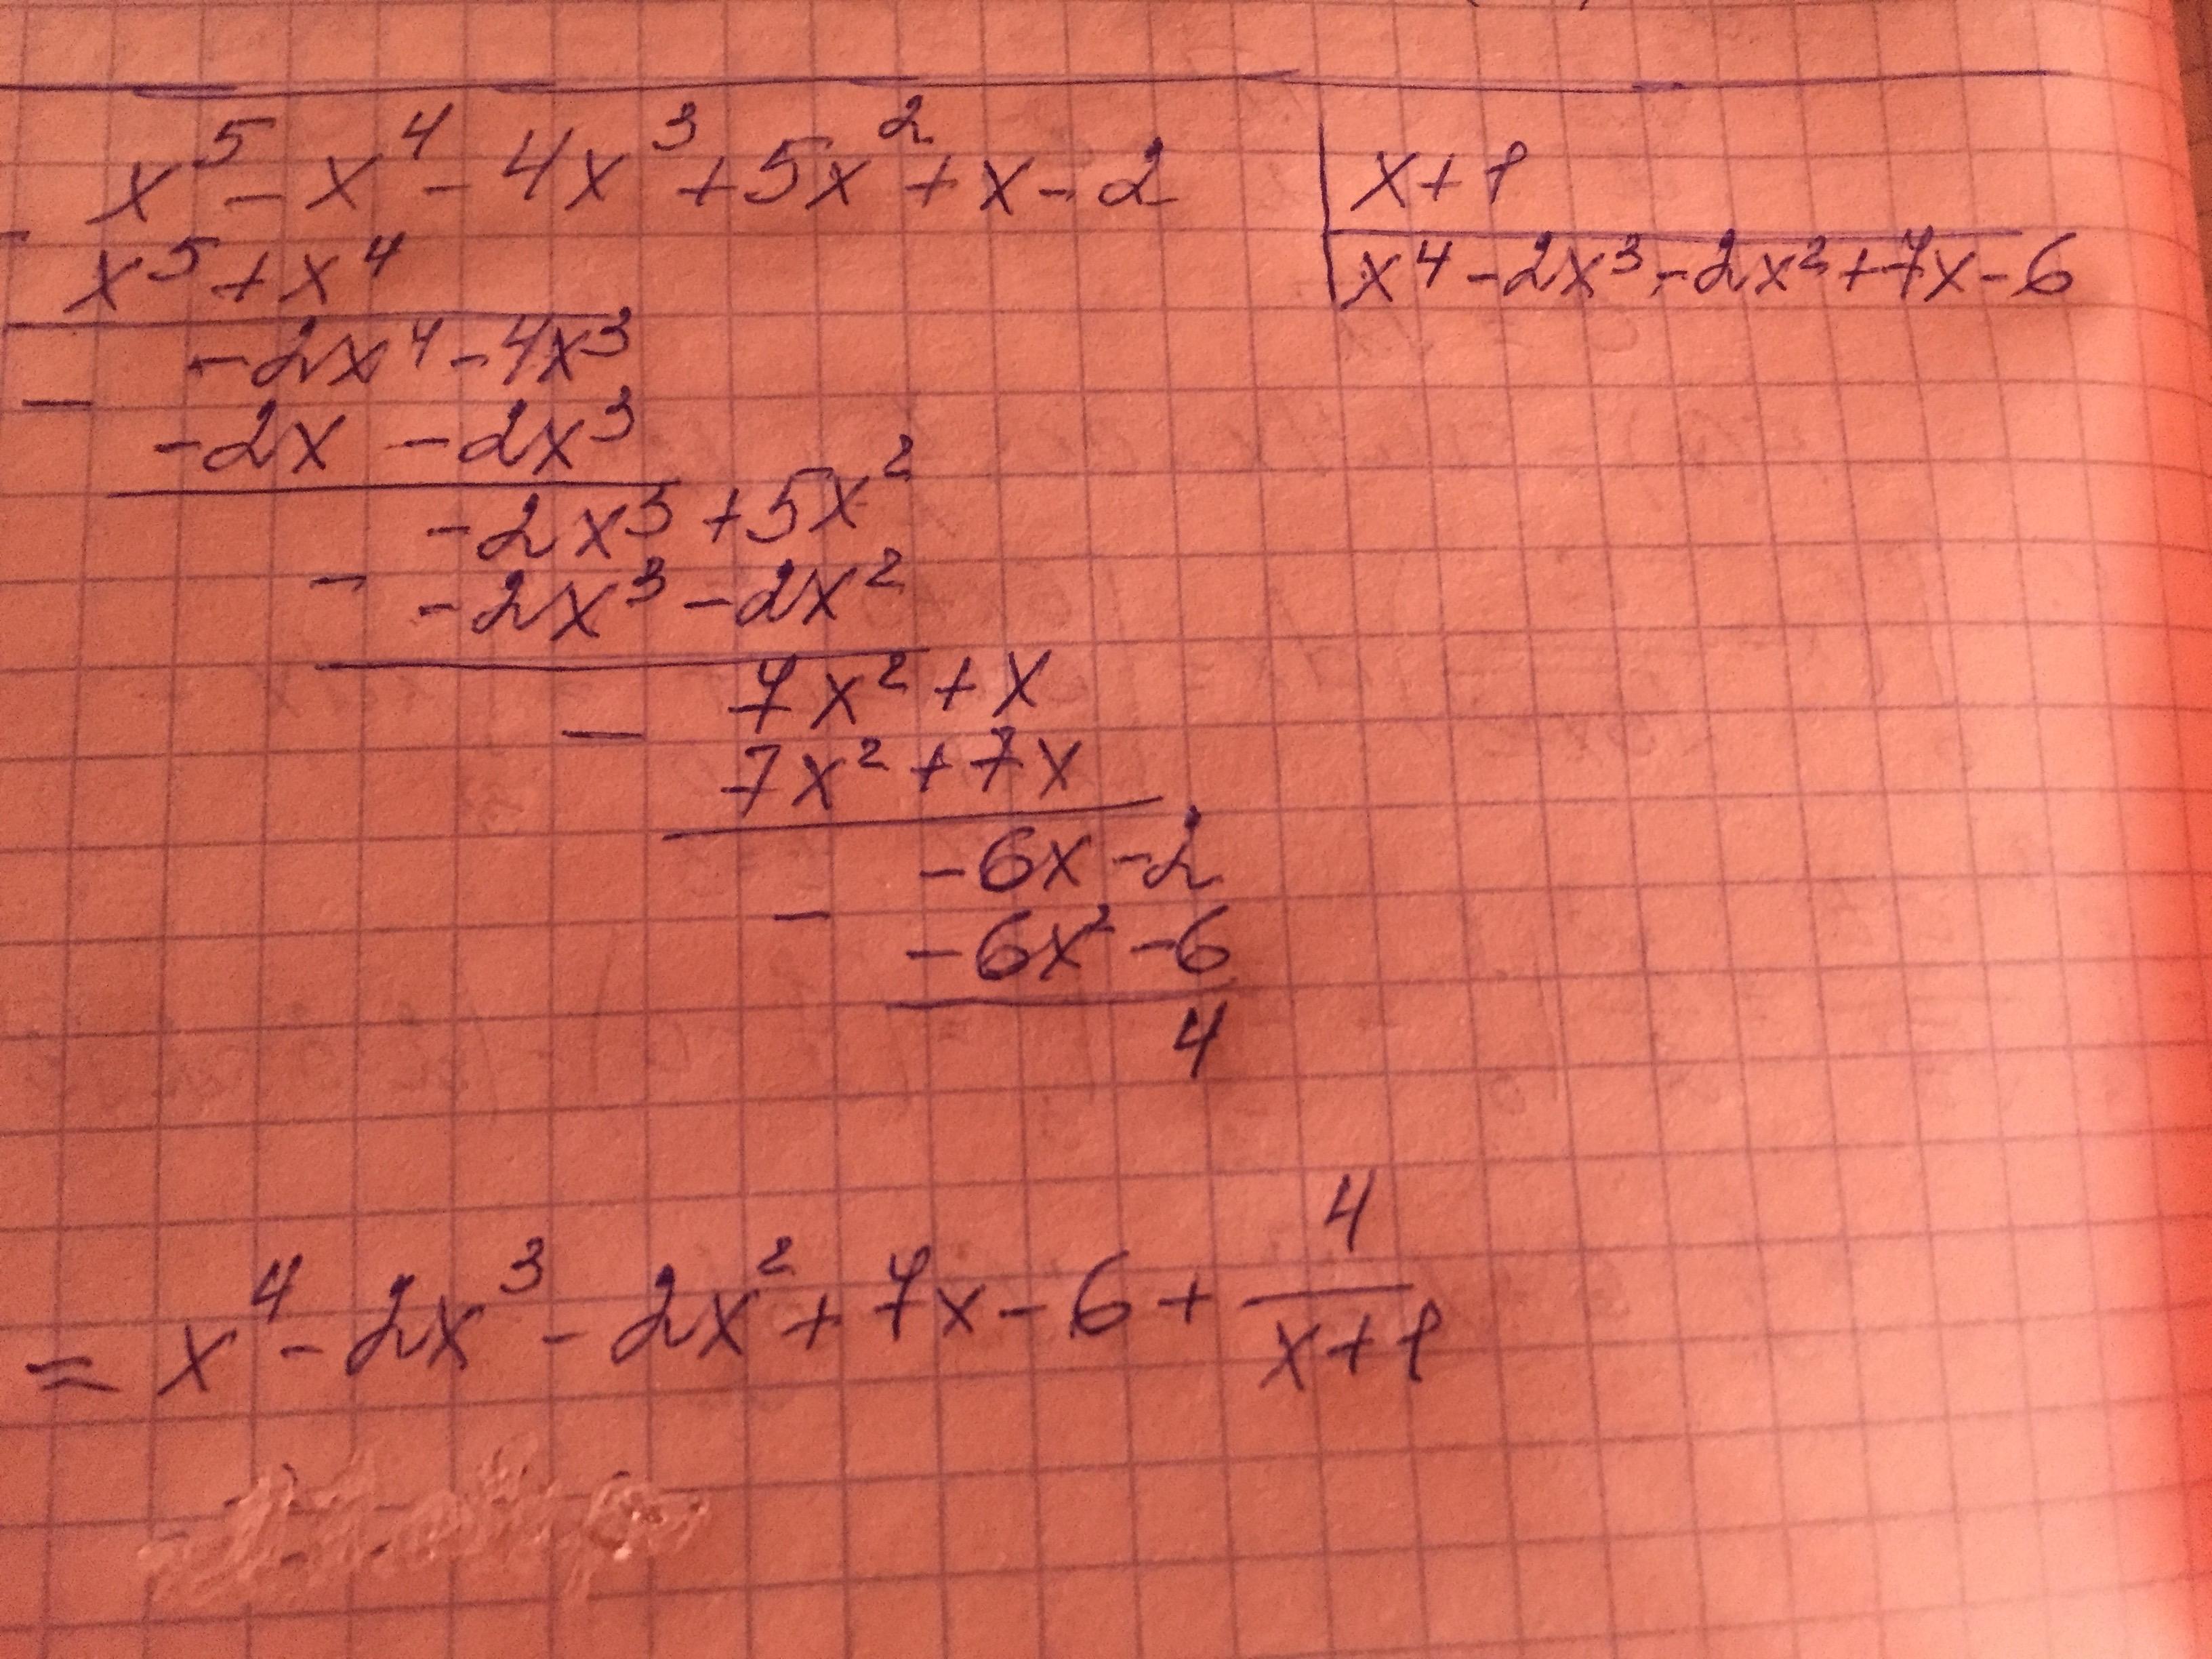 x⁵ - x⁴ - 4x³ + 5x² + x - 2 | x + 1
- x⁵ + x⁴ | x⁴ - 2x³ - 2x² + 7x - 6
-2x⁴ - 4x³
- -2x - 2x³
-2x³ + 5x²
- -2x³ - 2x²
7x² + x
- 7x² + 7x
-6x - 2
- -6x² - 6
4
= x⁴ - 2x³ - 2x² + 7x - 6 + 4/(x + 1)